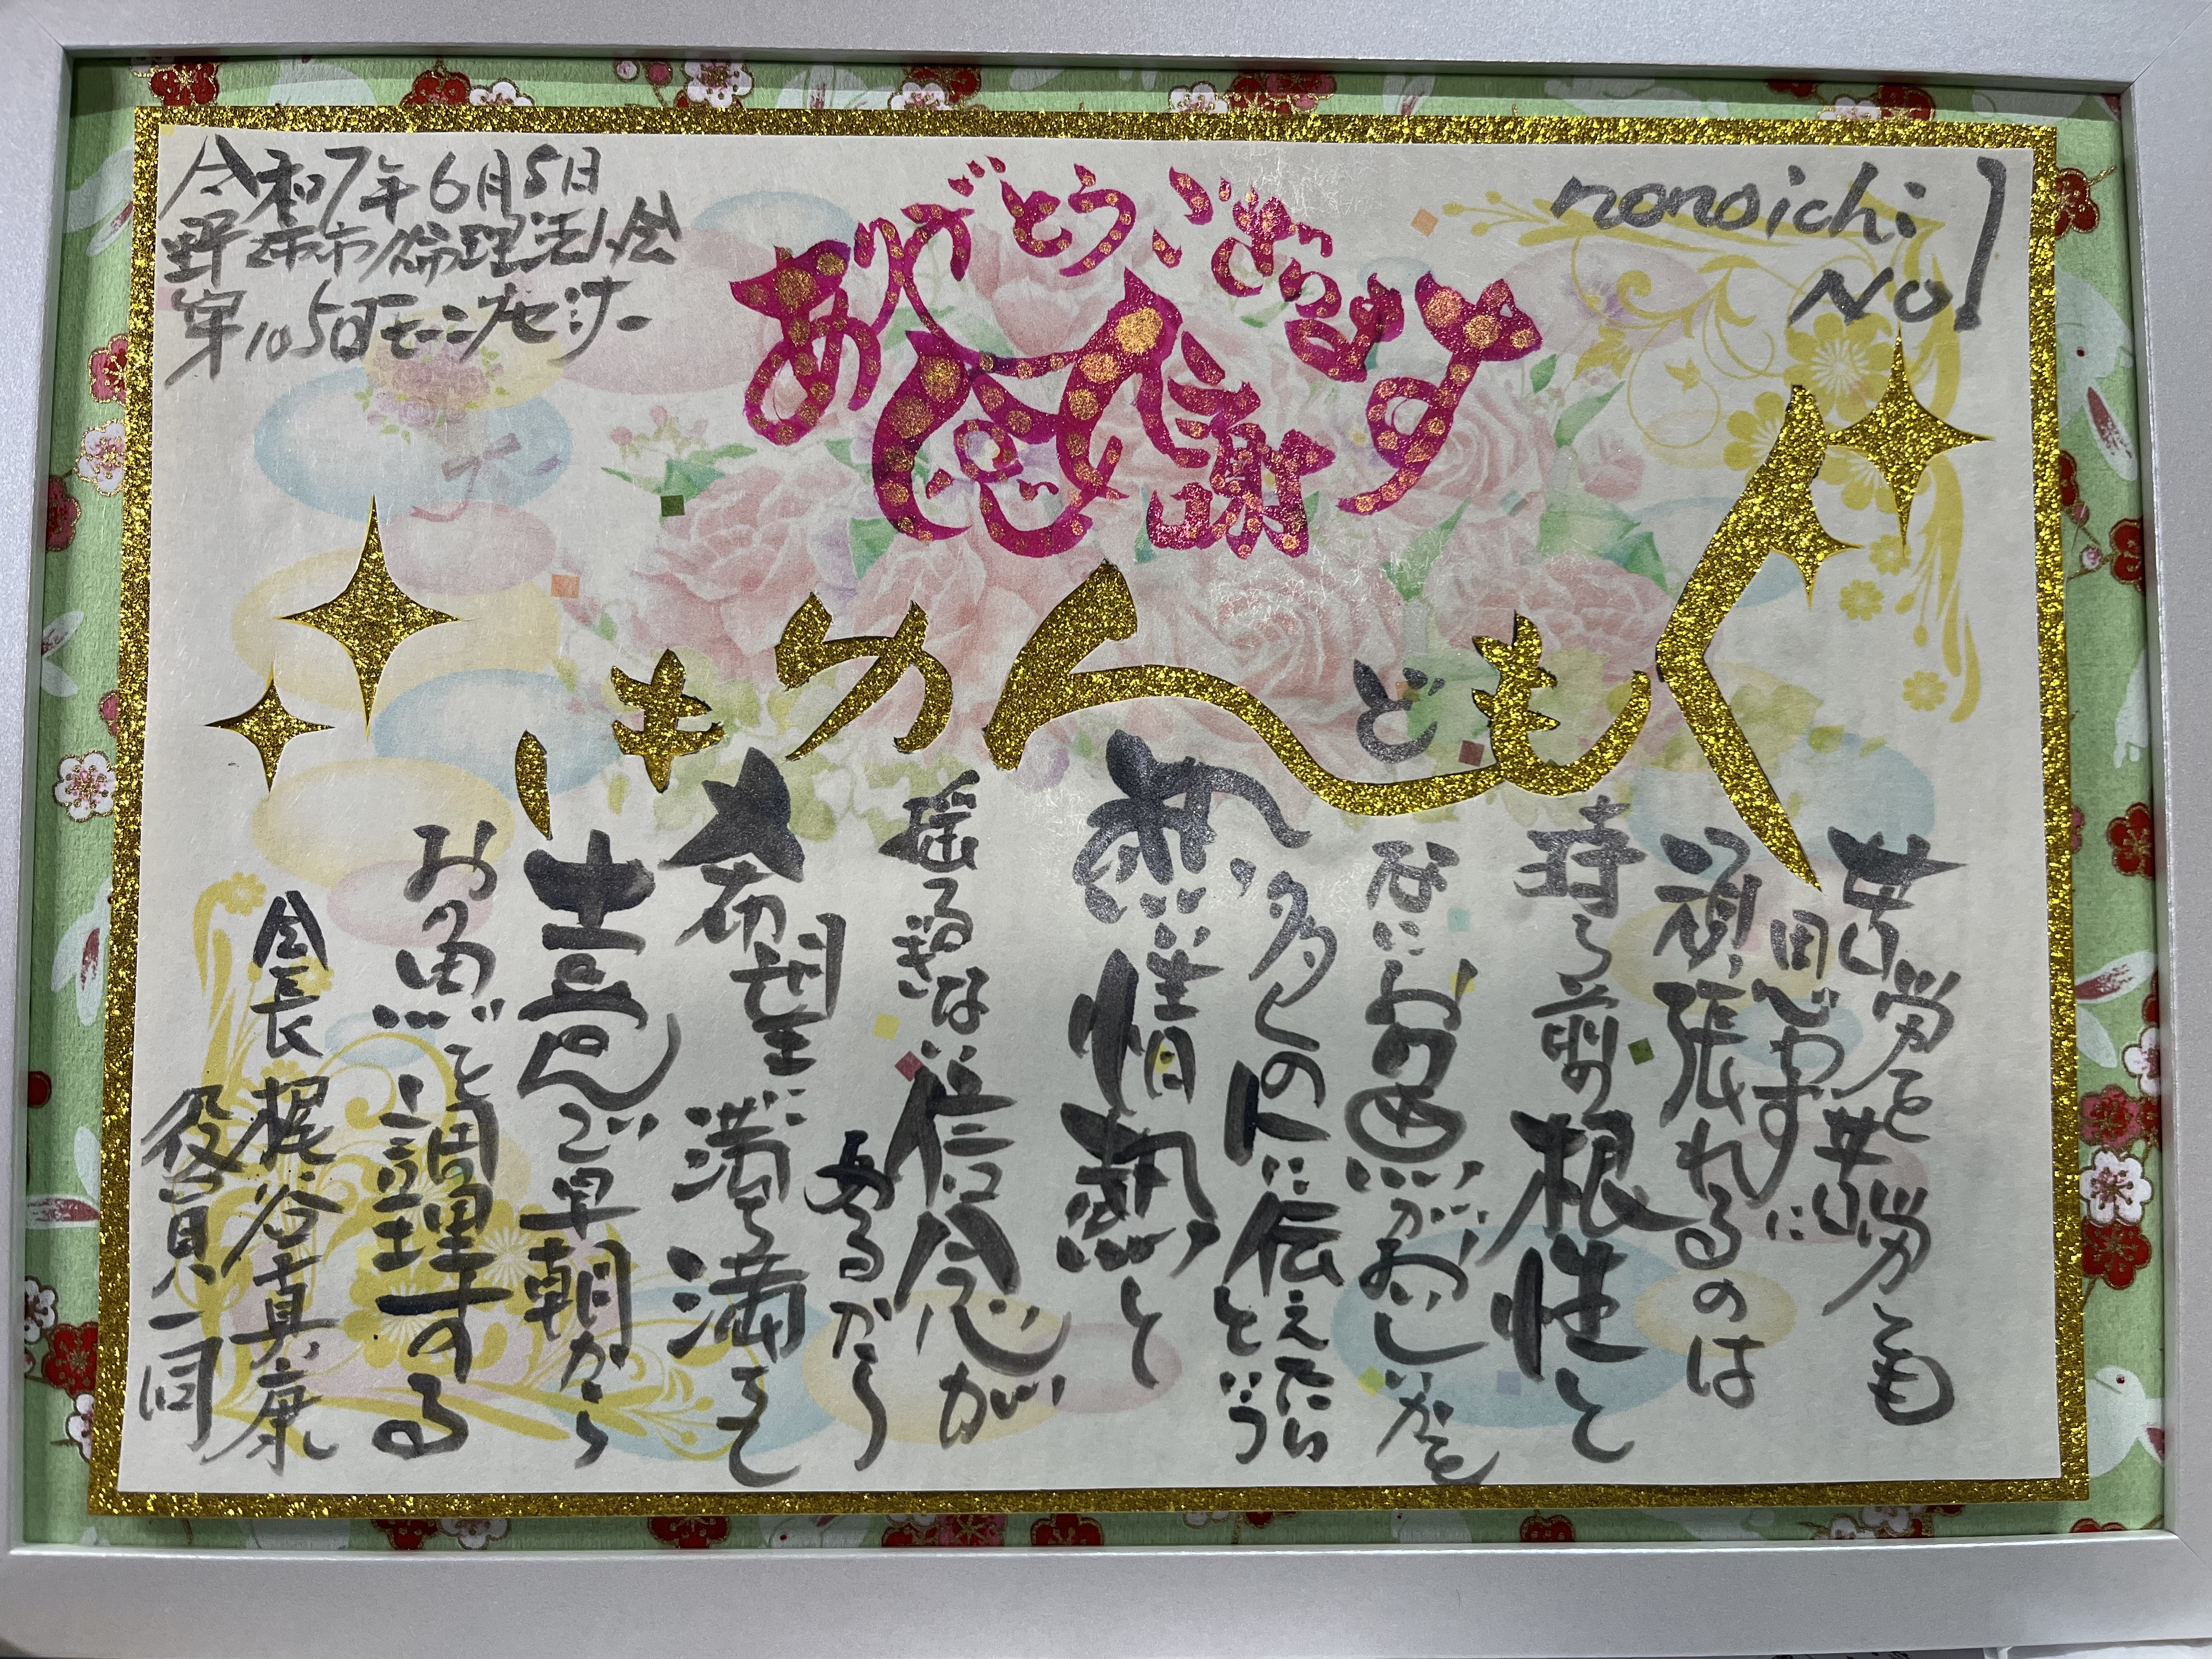 令和7年6月5日
野々市市倫理法人会
第105回モーニングセミナー
nonoichi
No1
ありがとうございます
感謝
くどもんかきし
苦労を苦労とも
思わずに
頑張れるのは
持ち前の根性と
なにお魚がおいしいかを
多くの人に伝えたいという
熱い情熱と
揺るぎない信念が
あるから
希望に満ち満ちて
喜んで早朝から
お魚を調理する
会長 梶谷真康
役員一同